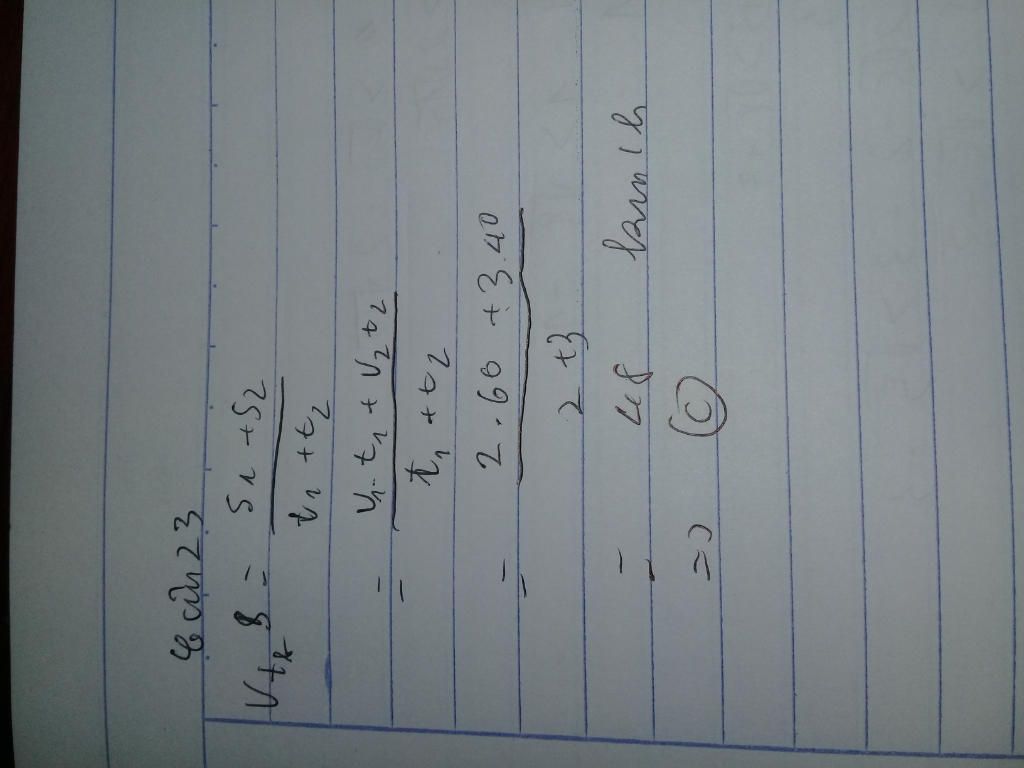 Câu 23
Vtb = S1 + S2
t1 + t2
= V1.t1 + V2t2
t1 + t2
= 2.60 + 3.40
2 + 3
= 48 km/h
=> C